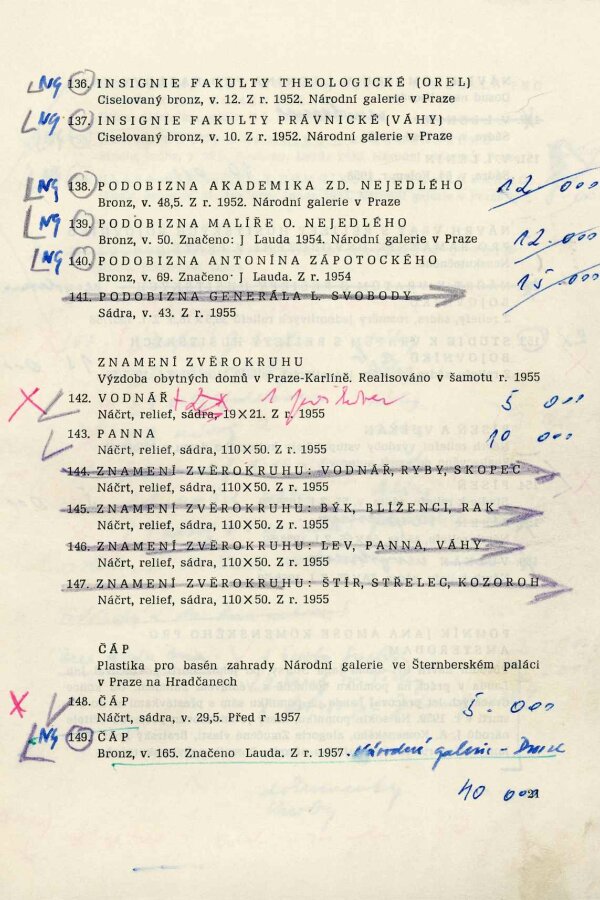 NG 136. INSIGNIE FAKULTY THEOLOGICKÉ (OREL)
Ciselovaný bronz, v. 12. Z r. 1952. Národní galerie v Praze
NG 137. INSIGNIE FAKULTY PRÁVNICKÉ (VÁHY)
Ciselovaný bronz, v. 10. Z r. 1952. Národní galerie v Praze
NG 138. PODOBIZNA AKADEMIKA ZD. NEJEDLÉHO 12 000
Bronz, v. 48,5. Z r. 1952. Národní galerie v Praze
NG 139. PODOBIZNA MALÍŘE O. NEJEDLÉHO
Bronz, v. 50. Značeno: J Lauda 1954. Národní galerie v Praze 12.000
NG 140. PODOBIZNA ANTONÍNA ZÁPOTOCKÉHO
Bronz, v. 69. Značeno: J Lauda. Z r. 1954 15 000
141. PODOBIZNA GENERÁLA L. SVOBODY
Sádra, v. 43. Z r. 1955
ZNAMENÍ ZVĚROKRUHU
Výzdoba obytných domů v Praze-Karlíně. Realisováno v šamotu r. 1955
142. VODNÁŘ 5 000
Náčrt, relief, sádra, 19×21. Z r. 1955
143. PANNA 10 000
Náčrt, relief, sádra, 110×50. Z r. 1955
144. ZNAMENÍ ZVĚROKRUHU: VODNÁŘ, RYBY, SKOPEC
Náčrt, relief, sádra, 110×50. Z r. 1955
145. ZNAMENÍ ZVĚROKRUHU: BÝK, BLÍŽENCI, RAK
Náčrt, relief, sádra, 110×50. Z r. 1955
146. ZNAMENÍ ZVĚROKRUHU: LEV, PANNA, VÁHY
Náčrt, relief, sádra, 110×50. Z r. 1955
147. ZNAMENÍ ZVĚROKRUHU: ŠTÍR, STŘELEC, KOZOROH
Náčrt, relief, sádra, 110×50. Z r. 1955
ČÁP
Plastika pro basén zahrady Národní galerie ve Šternberském paláci
v Praze na Hradčanech
148. ČÁP 5.000
Náčrt, sádra, v. 29,5. Před r 1957
NG 149. ČÁP
Bronz, v. 165. Značeno Lauda. Z r. 1957. Národní galerie -
40 000
21